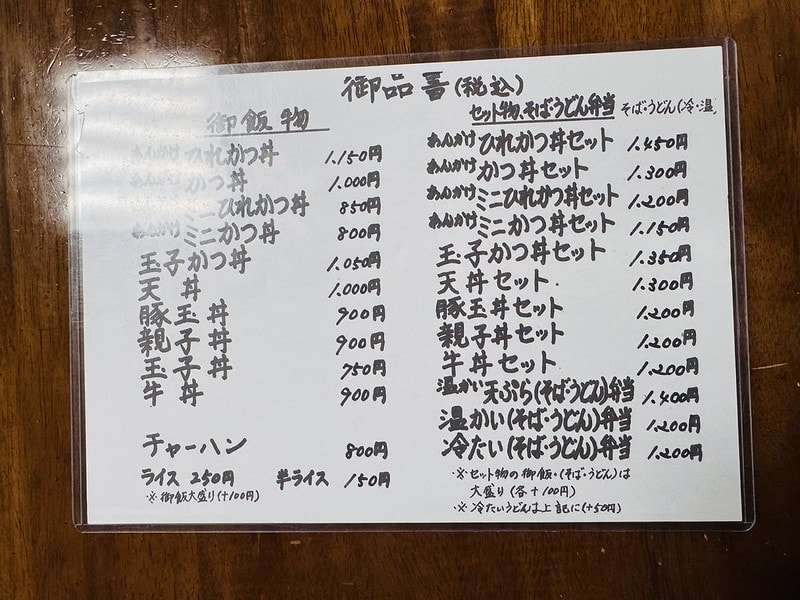 御品書(税込)
御飯物
あんかけひれかつ丼 1.150円
あんかけかつ丼 1.000円
あんかけミニひれかつ丼 850円
あんかけミニかつ丼 800円
玉子かつ丼 1.050円
天丼 1.000円
豚玉丼 900円
親子丼 900円
玉子丼 750円
牛丼 900円
チャーハン 800円
ライス 250円 半ライス 150円
※御飯大盛り(+100円)
セット物、そば・うどん弁当 そば・うどん(冷・温)
あんかけひれかつ丼セット 1.450円
あんかけかつ丼セット 1.300円
あんかけミニひれかつ丼セット 1.200円
あんかけミニかつ丼セット 1.150円
玉子かつ丼セット 1.350円
天丼セット. 1.300円
豚玉丼セット 1.200円
親子丼セット 1.200円
牛丼セット 1.200円
温かい天ぷら(そば・うどん)弁当 1.400円
温かい(そば・うどん)弁当 1.200円
冷たい(そば・うどん)弁当 1.200円
※セット物の御飯・(そば・うどん)は
大盛り(各+100円)
※冷たいうどんは上記に(+50円)